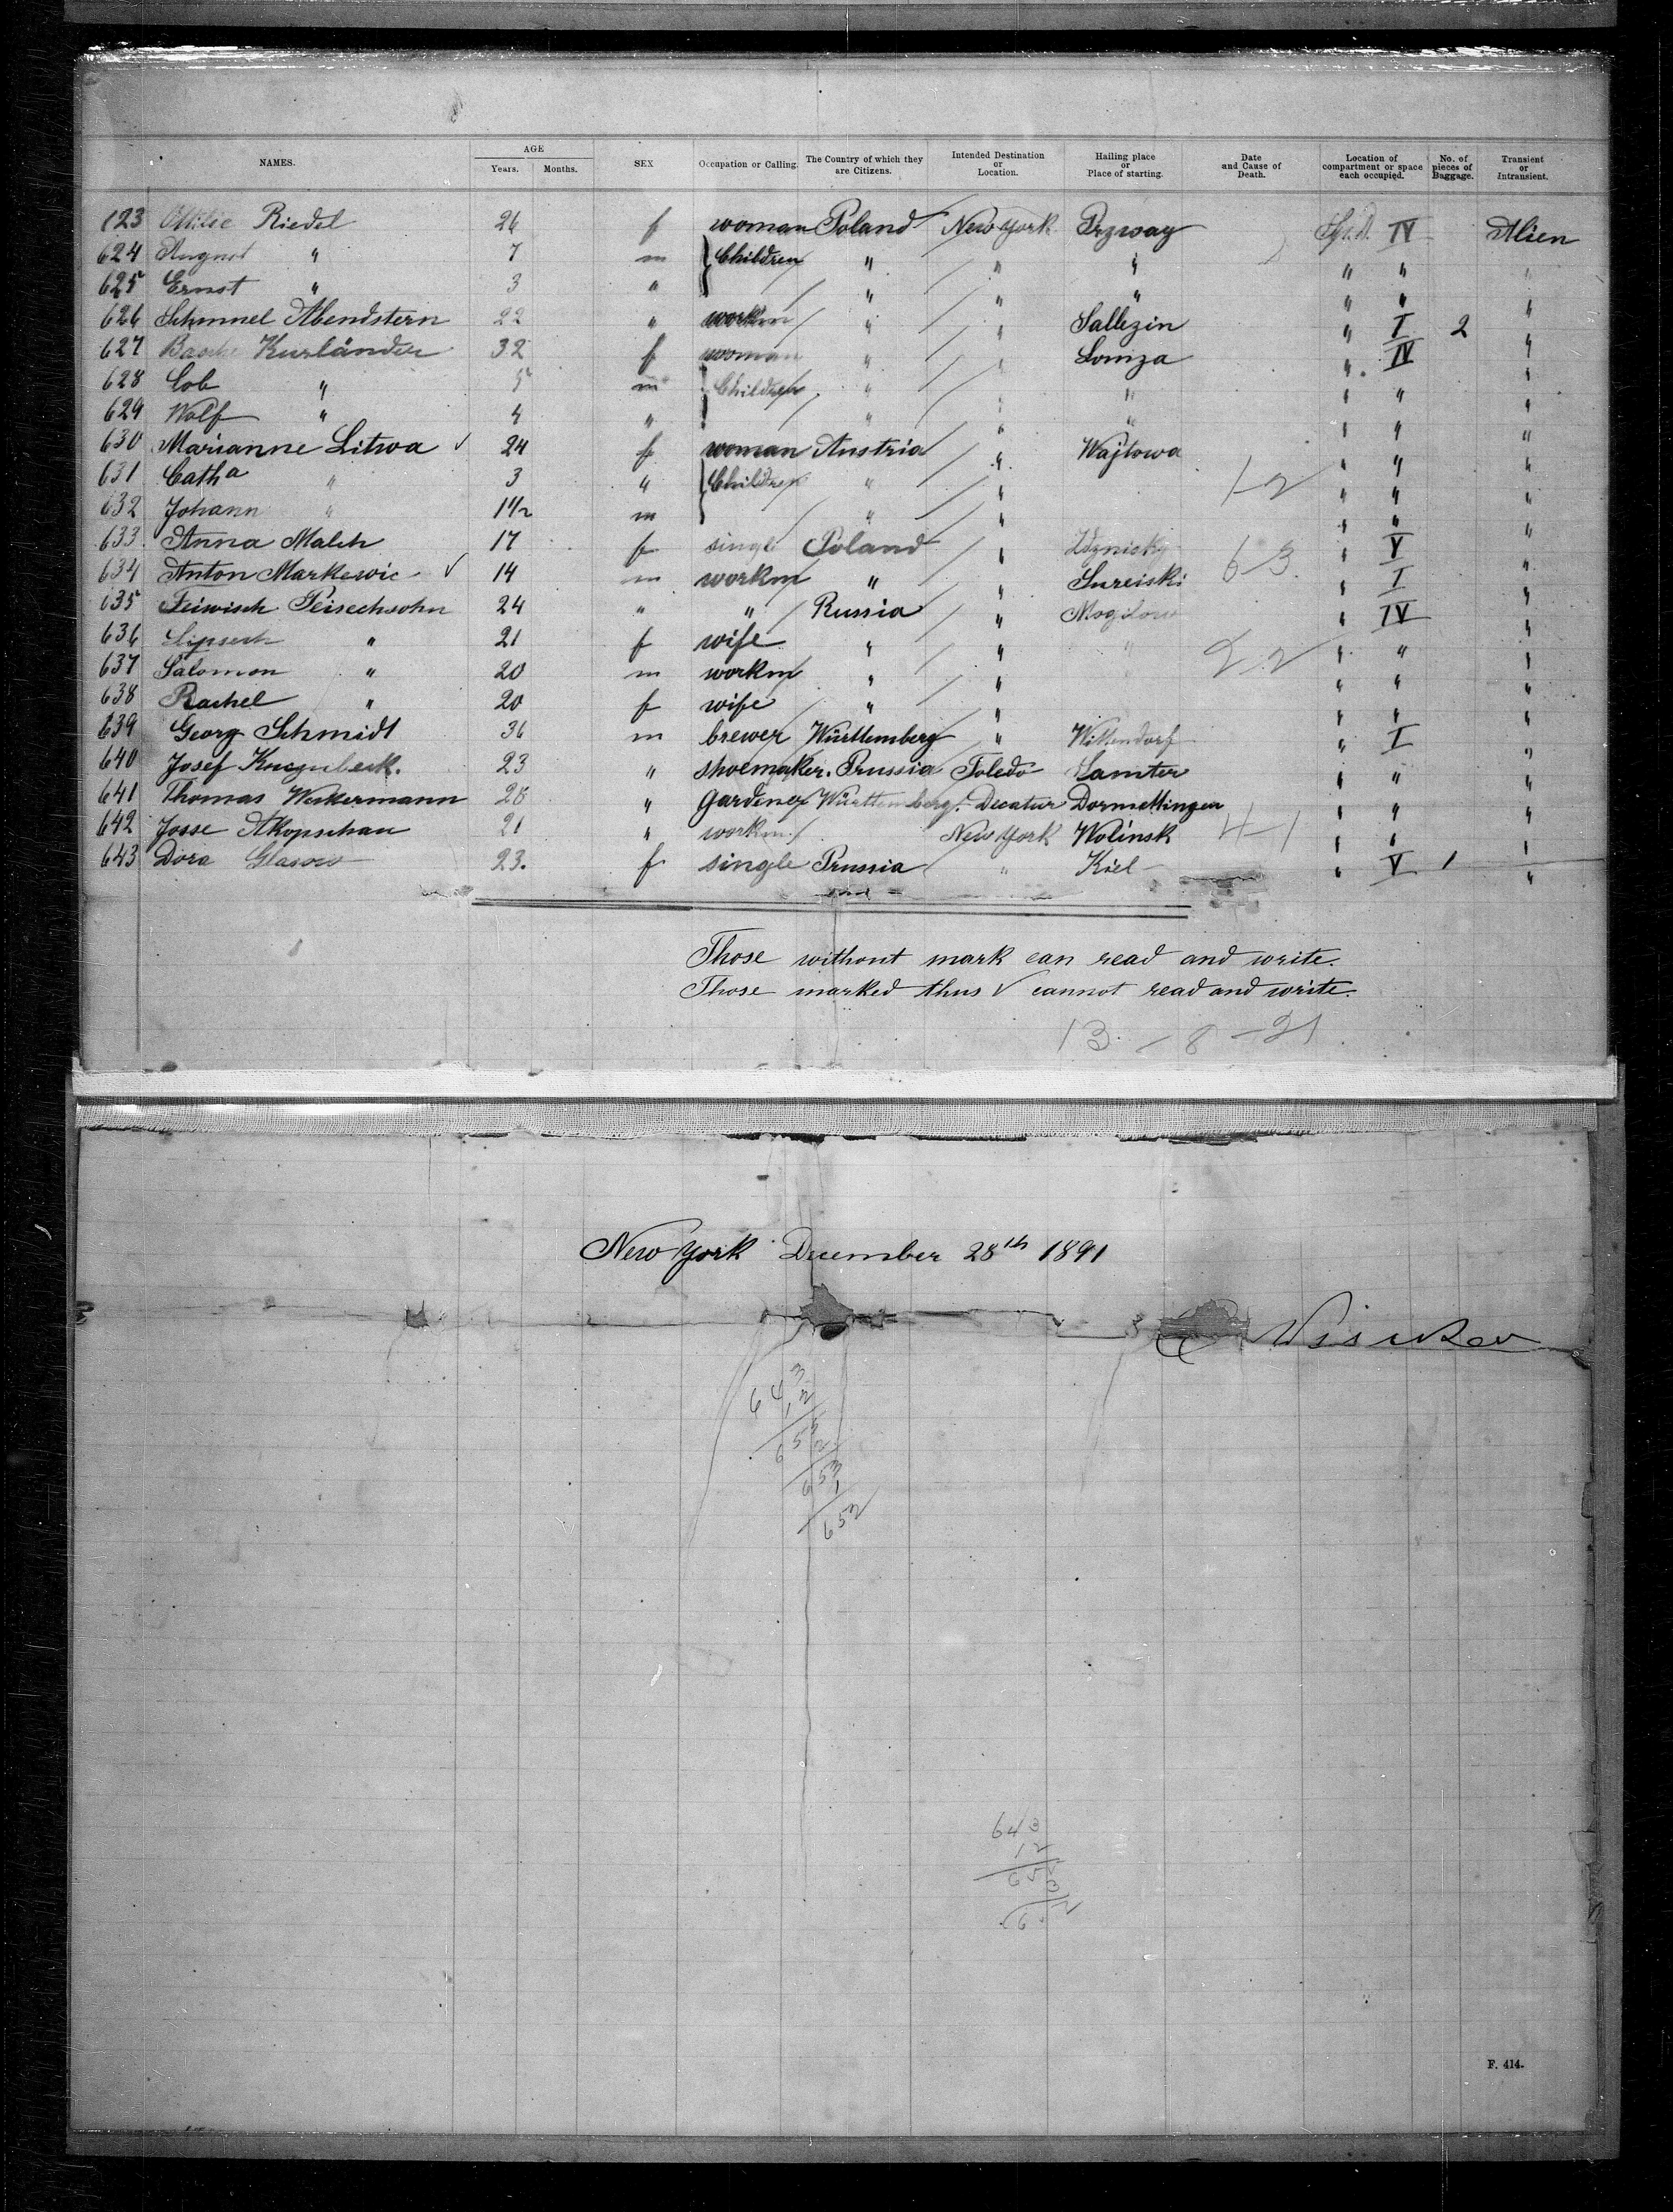 NAMES. AGE Years. Months. SEX Occupation or Calling. The Country of which they are Citizens. Intended Destination or Location. Hailing place or Place of starting. Date and Cause of Death. Location of compartment or space each occupied. No. of pieces of Baggage. Transient or Intransient.
123 Ottilie Riedel 26 f woman Poland New York Przway IV Alien
624 August " 7 m Children " " " " " "
625 Ernst " 3 " " " " " " "
626 Schmuel Abendstern 22 " workm " " Sallezin " I 2 "
627 Basche Kurländer 32 f woman " " Lomza " IV "
628 Lob " 5 m Children " " " " " "
629 Wolf " 4 " " " " " " "
630 Marianne Litwa √ 24 f woman Austria " Wajtowa " " "
631 Catha " 3 " Children " " 1-2 " " "
632 Johann " 1 1/2 m " " " " "
633 Anna Malch 17 f single Poland " 6-3 " V "
634 Anton Markewic √ 14 m workm " " Sureiski " I "
635 Feiwisch Peisechsohn 24 " " Russia " Mogilow " IV "
636 " 21 f wife " " " 2-2 " " "
637 Salomon " 20 m workm " " " " "
638 Rachel " 20 f wife " " " " "
639 Georg Schmidt 36 m brewer Württemberg " Wittendorf " I "
640 Josef 23 " shoemaker. Prussia Toledo Samter " " "
641 Thomas Weckermann 28 " Gardener Württemberg. Decatur Dormettingen " " "
642 Josse Akopschan 21 " workm. New York Wolinsk 4-1 " " "
643 Dora Glasow 23. f single Prussia " Kiel " V 1 "
Those without mark can read and write.
Those marked thus √ cannot read and write.
13 - 8 - 21
New York December 28th 1891
643
12
655
2
653
1
652
643
12
655
3
F. 414.